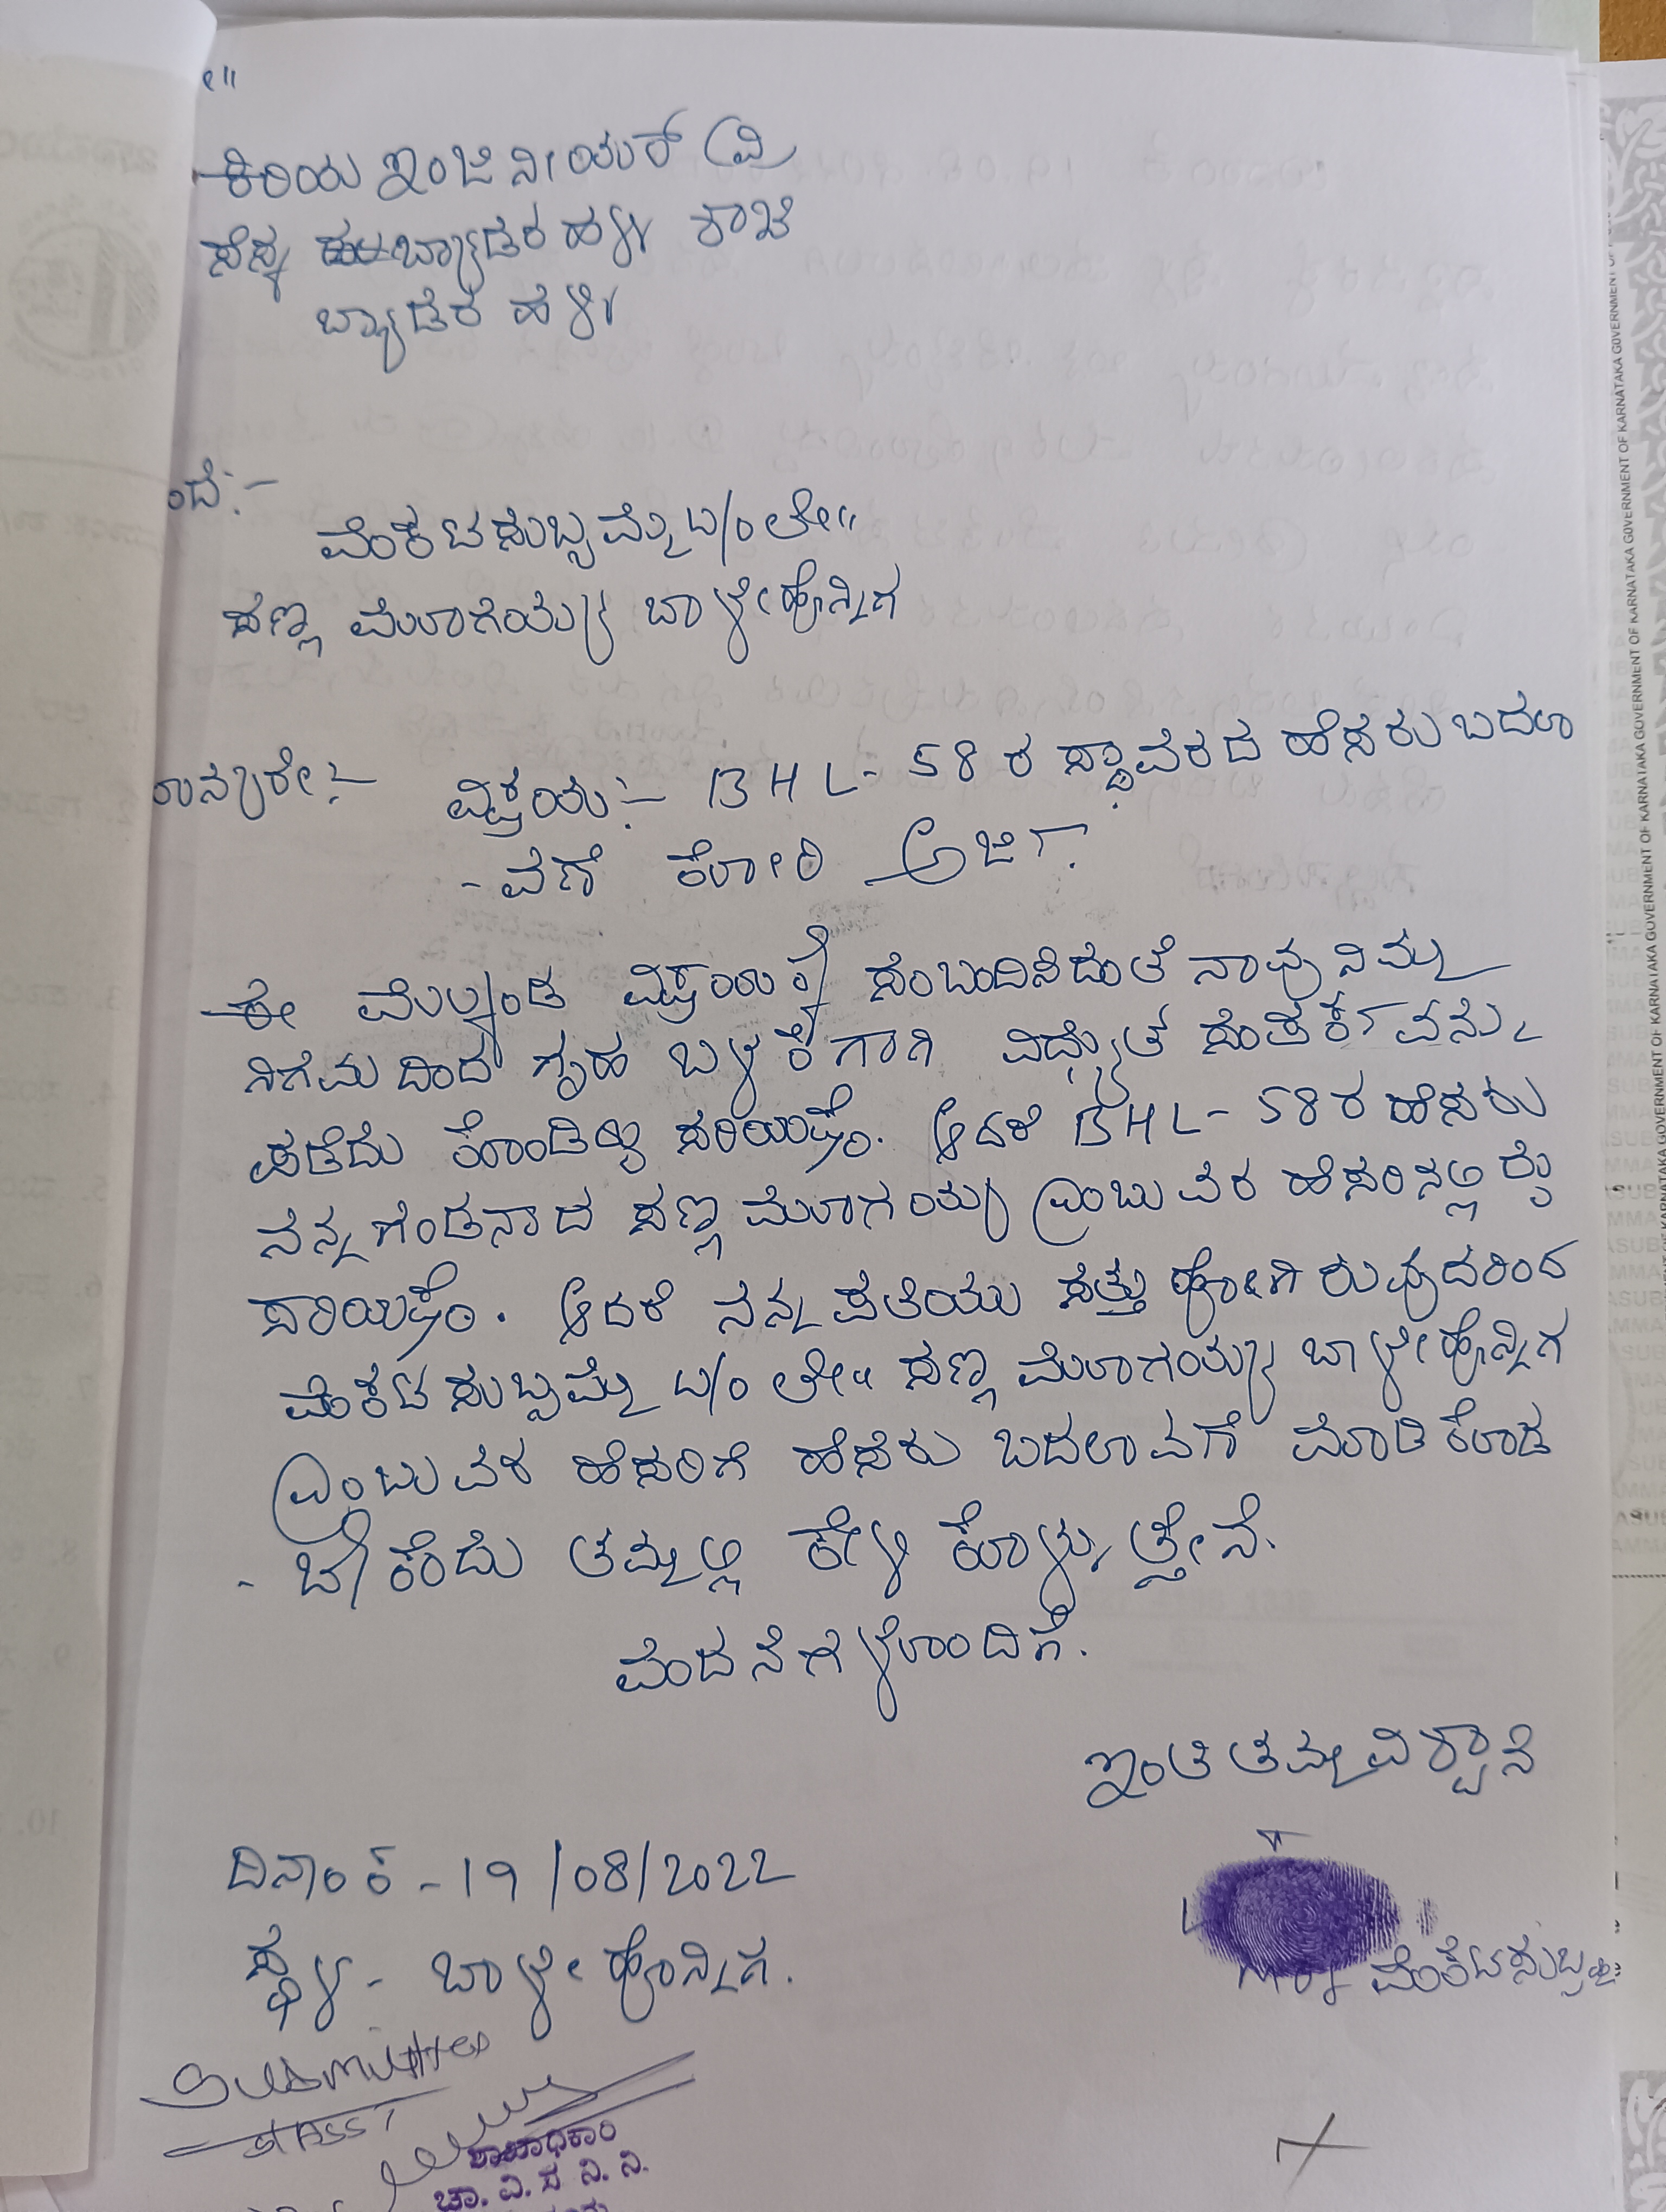 ಕಿರಿಯ ಇಂಜಿನೀಯರ್ ವಿ
ಸೆಸ್ಕ ಬ್ಯಾಡರಹಳ್ಳಿ ಶಾಖೆ
ಬ್ಯಾಡರಹಳ್ಳಿ
ಂದ:-
ವೆಂಕಟಸುಬ್ಬಮ್ಮ ಬಿ/ಂ ಲೇ॥
ಸಣ್ಣ ಮೊಗಯ್ಯ ಬಾಳೇಹೊನ್ನಿಗ
ಾನ್ಯರೇ:- ವಿಷಯ:- BHL-58ರ ಸ್ಥಾವರದ ಹೆಸರು ಬದಲಾ
-ವಣೆ ಕೋರಿ ಅರ್ಜಿ.
ಈ ಮೇಲ್ಕಂಡ ವಿಷಯಕ್ಕೆ ಸಂಬಂದಿಸಿದಂತೆ ನಾವು ನಿಮ್ಮ
ನಿಗಮದಿಂದ ಗೃಹ ಬಳಕೆಗಾಗಿ ವಿದ್ಯುತ ಸಂಪರ್ಕವನ್ನು
ಪಡೆದು ಕೊಂಡಿದ್ದು ಸರಿಯಷ್ಟೆ. ಆದರೆ BHL-58ರ ಹೆಸರು
ನನ್ನ ಗಂಡನಾದ ಸಣ್ಣ ಮೊಗಯ್ಯ ಎಂಬುವರ ಹೆಸರಿನಲ್ಲಿದ್ದು
ಸರಿಯಷ್ಟೆ. ಆದರೆ ನನ್ನ ಪತಿಯು ಸತ್ತು ಹೋಗಿರುವುದರಿಂದ
ವೆಂಕಟಸುಬ್ಬಮ್ಮ ಬಿ/ಂ ಲೇ॥ ಸಣ್ಣ ಮೊಗಯ್ಯ ಬಾಳೇಹೊನ್ನಿಗ
ಎಂಬುವರ ಹೆಸರಿಗೆ ಹೆಸರು ಬದಲಾವಣೆ ಮಾಡಿಕೊಡ
-ಬೇಕೆಂದು ತಮ್ಮಲ್ಲಿ ಕೇಳಿ ಕೊಳ್ಳುತ್ತೇನೆ.
ವಂದನೆಗಳೊಂದಿಗೆ.
ಇಂತಿ ತಮ್ಮ ವಿಶ್ವಾಸಿ
ದಿನಾಂಕ -19/08/2022
ಸ್ಥಳ- ಬಾಳೇಹೊನ್ನಿಗ.
ವೆಂಕಟಸುಬ್ಬಮ್ಮ
Submitted
ಶಾಖಾಧಿಕಾರಿ
ಚಾ. ವಿ. ಸ ನಿ. ನಿ.